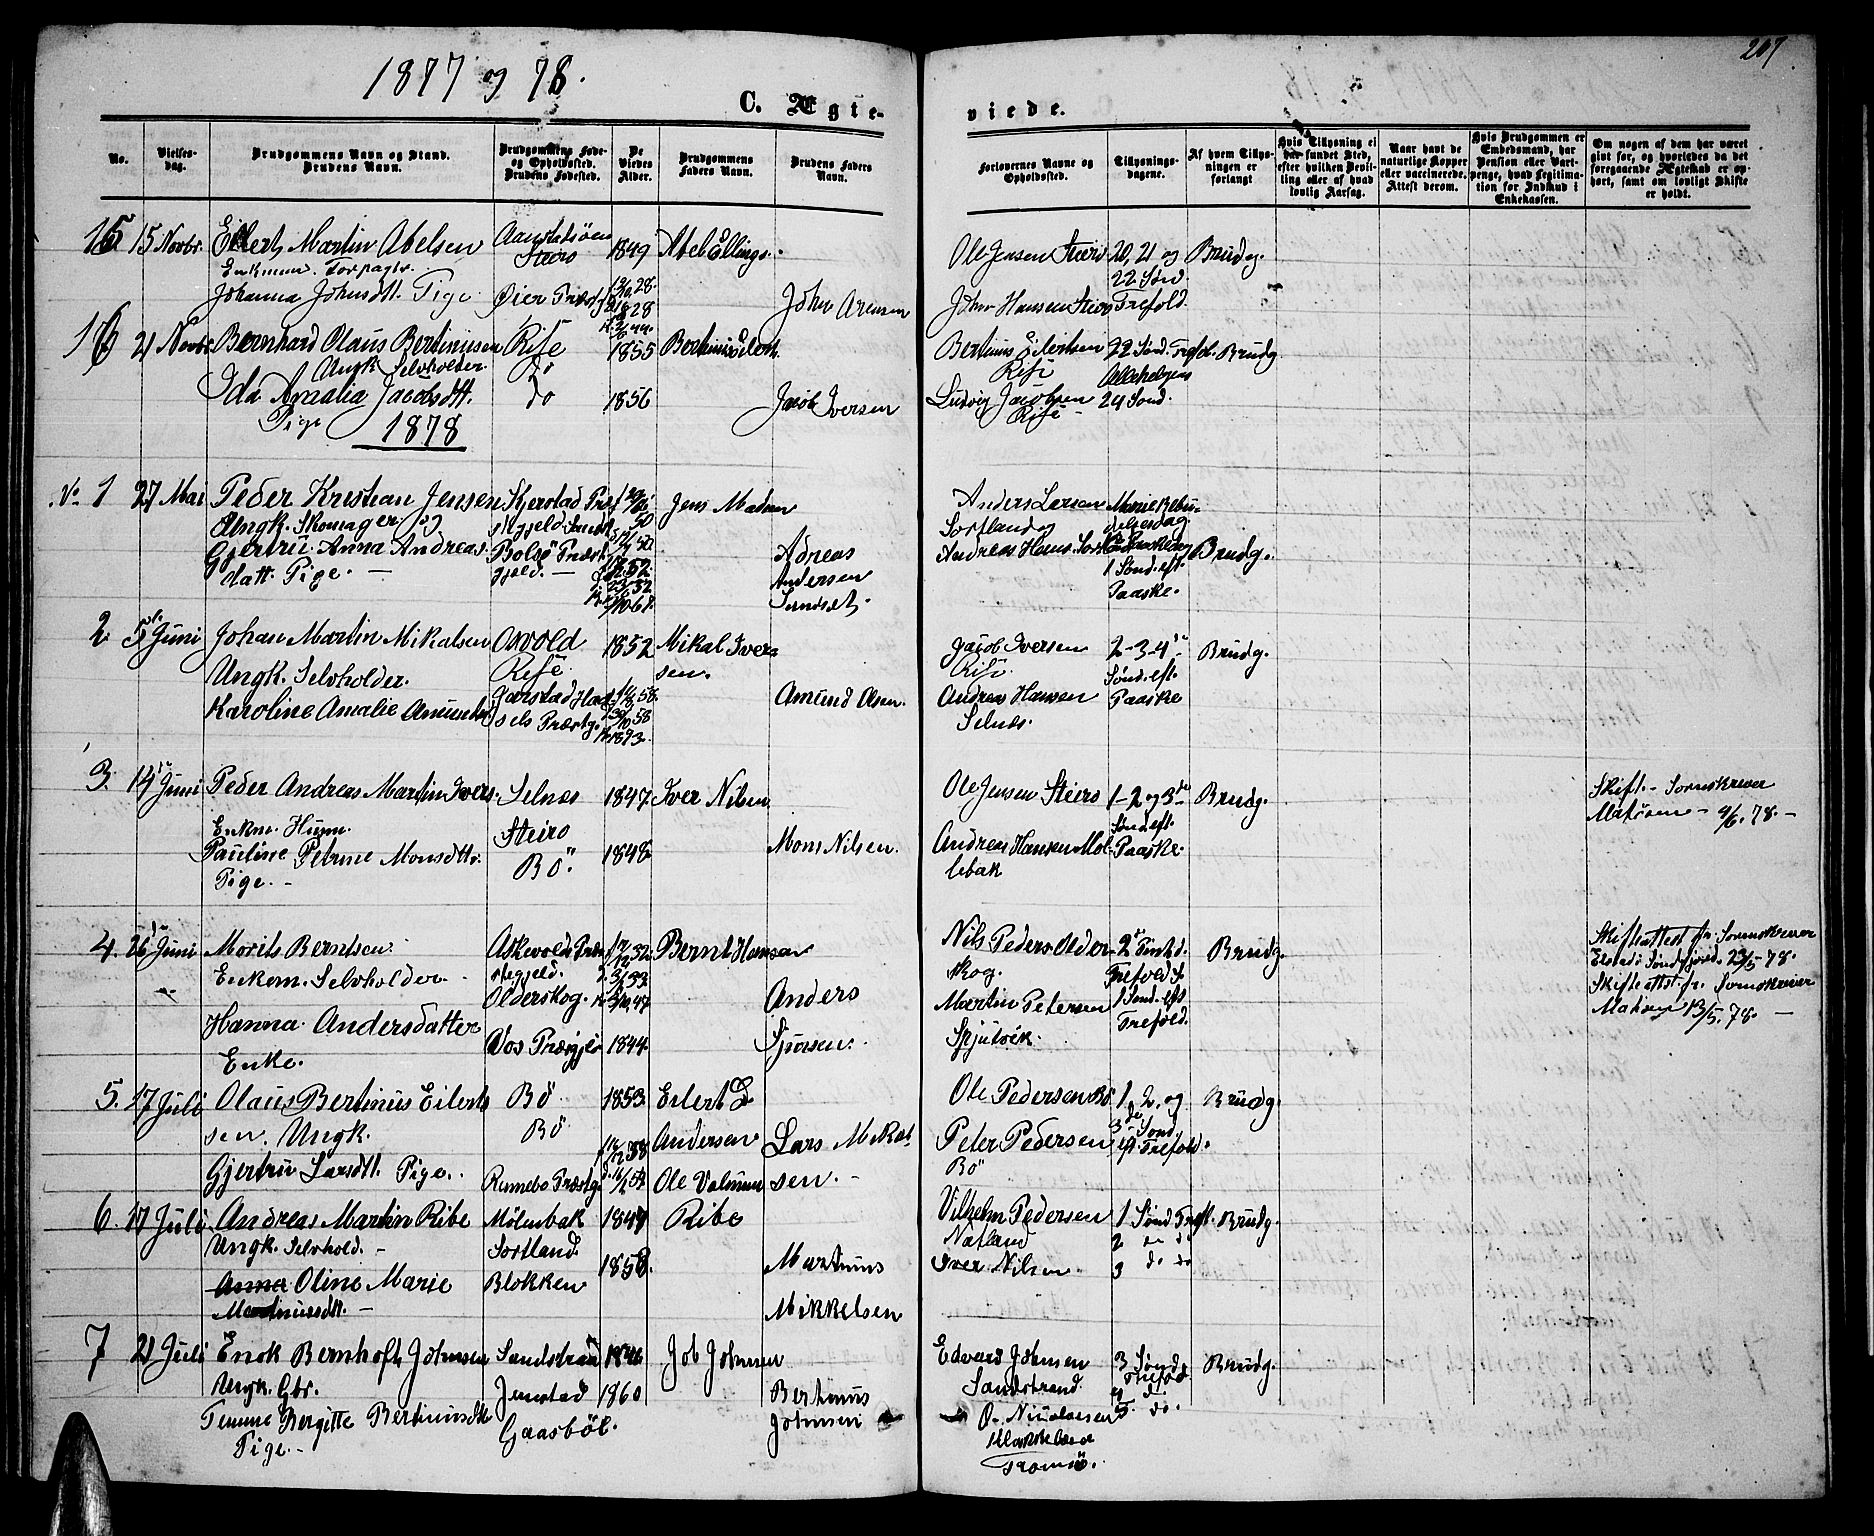 1877 og 78.
207
C. Ægte-
viede.
No.
Vielses-
dag.
Brudgommens Navn og Stand.
Brudens Navn.
Brudgommens Føde-
og Opholdssted.
Brudens Fødested.
De
Viedes
Alder.
Brudgommens
Faders Navn.
Brudens Faders
Navn.
Forlovernes Navne og
Opholdssted.
Tillysnings-
dagene.
Af hvem Tillys-
ningen er
forlangt
Hvis Tillysning ei
har fundet Sted,
efter hvilken Bevil-
ling eller af hvad
lovlig Aarsag.
Naar havt de
naturlige Kopper
eller vaccinerede.
Attest derom.
Hvis Brudgommen er
Embedsmand, har
Pension eller Vart-
penge, hvad Legitima-
tion for Indskud i
Enkekassen.
Om nogen af dem har været
givt for, og hvorledes da det
foregaaende Ægteskab er op-
hørt, samt om lovligt Skifte
er holdt.
15 15 Novbr. Eilert Martin Abelsen
Enkmm.
Johanna Johnsdtt. Pige
Steiro
Øier Præstg
1849
Abel Ellings.
John Arensen
Ole Jensen Steiro
John Hansen Steiro
20, 21 og
22 Sønd.
Trefold.
Brudg.
16 21 Novbr. Bernhard Olaus Bertinussen
Ungk Selvholder
Ida Amalia Jacobsdtt.
Pige
Risé
do
do
1855
1856
Bertinus Eilert.
Jacob Iversen
Bertinus Eilertsen
Risé
Ludvig Jacobsen
Risé
22 Sønd. Tref.
Allehelgens
24 Sønd.
Brudg
1878
No 1 27 Mai Peder Kristian Jensen
Ungk. Skomager og
Gjertru Anna Andreas
datt. Pige. —
Kjerstad Præ
Bolsø Præst
gjeld. —
Jens Madsen
Adreas
Andersen
Anders Larsen
Sortland og
Andreas Hans. Sort
Marie Bebu-
delsesdag.
1 Sønd. eft.
Paaske.
Brudg.
2. 5te Juni Johan Martin Mikalsen
Ungk. Selvholder.
Karoline Amalie Amunds
Osvold
Risé
Jørstad Had
sels Præstg.
1852
Mikal Iver
sen.
Amund Olsen.
Jacob Iversen
Risé.
Andreas Hansen
Selnæs.
2-3-4de
Sønd. eft.
Paaske
Brudg.
3. 14de Juni Peder Andreas Martin Ivers.
Enkm. Husm.
Pauline Petrine Monsdttr.
Pige. —
Selnæs
Steiro
Bö.
1847.
1848.
Iver Nilsen
Mons Nilsen.
Ole Jensen Steiro
Andreas Hansen Møl-
lebak
1-2 og 3de
Sønd. eft.
Paaske.
Brudg.
Skift. - Sorenskriver
Matsøn - 4/6. 78. —
4. 26 Juni Morits Berntsen.
Enkem. Selvholder.
Hanna Andersdatter
Enke.
Askevold Præ
stegjeld.
Olderskog.
Vos Præstgjeld
1844.
Bernt Hansen
Anders
Sjursen.
Nils Peders. Older-
skog.
Martin Petersen
Spjutvik.
2den Pintsd.
Trefold.
1 Sønd. eft
Trefold.
Brudg.
Skifteattest fr. Sorenskriver
Søndfjord. 23/5 78.
Skifteattst. fr. Sorenskriver
Matsøn 13/5. 78. —
5. 17 Juli Olaus Bertinus Eilert
sen. Ungk.
Gjertru Larsdtt. Pige.
Bö
Bö
Rennebo Præstg.
1853.
Eilert
Andersen
Lars Mikal
sen. —
Ole Pedersen Bö
Peter Pedersen
Bö
1, 2, og
3de Sønd.
eft. Trefold.
Brudg.
6. 17 Juli Andreas Martin Ribe
Ungk. Selvhold. —
Anna Oline Marie
Martinusdtt. —
Mölnbak
Sortland
Blokken
1858.
Ole Valmun
Ribe
Martinus
Mikkelsen
Vilhelm Pedersen
Natland
Iver Nilsen
1 Sønd Tref.
2 do do
3 do do
Brudg.
7 21 Juli Enok Bernhoft Johnsen
Ungk. Gbr.
Bergitte Bertinusdtt
Pige. —
Sandstrand
Jennestad
Gaasböl.
1846
1860
Job Johnsen
Bertinus
Johnsen
Edvard Johnsen
Sandstrand
O. Nicolaisen
Tromsö.
3 Sønd
Trefold
4 do.
5 do.
Brudg.